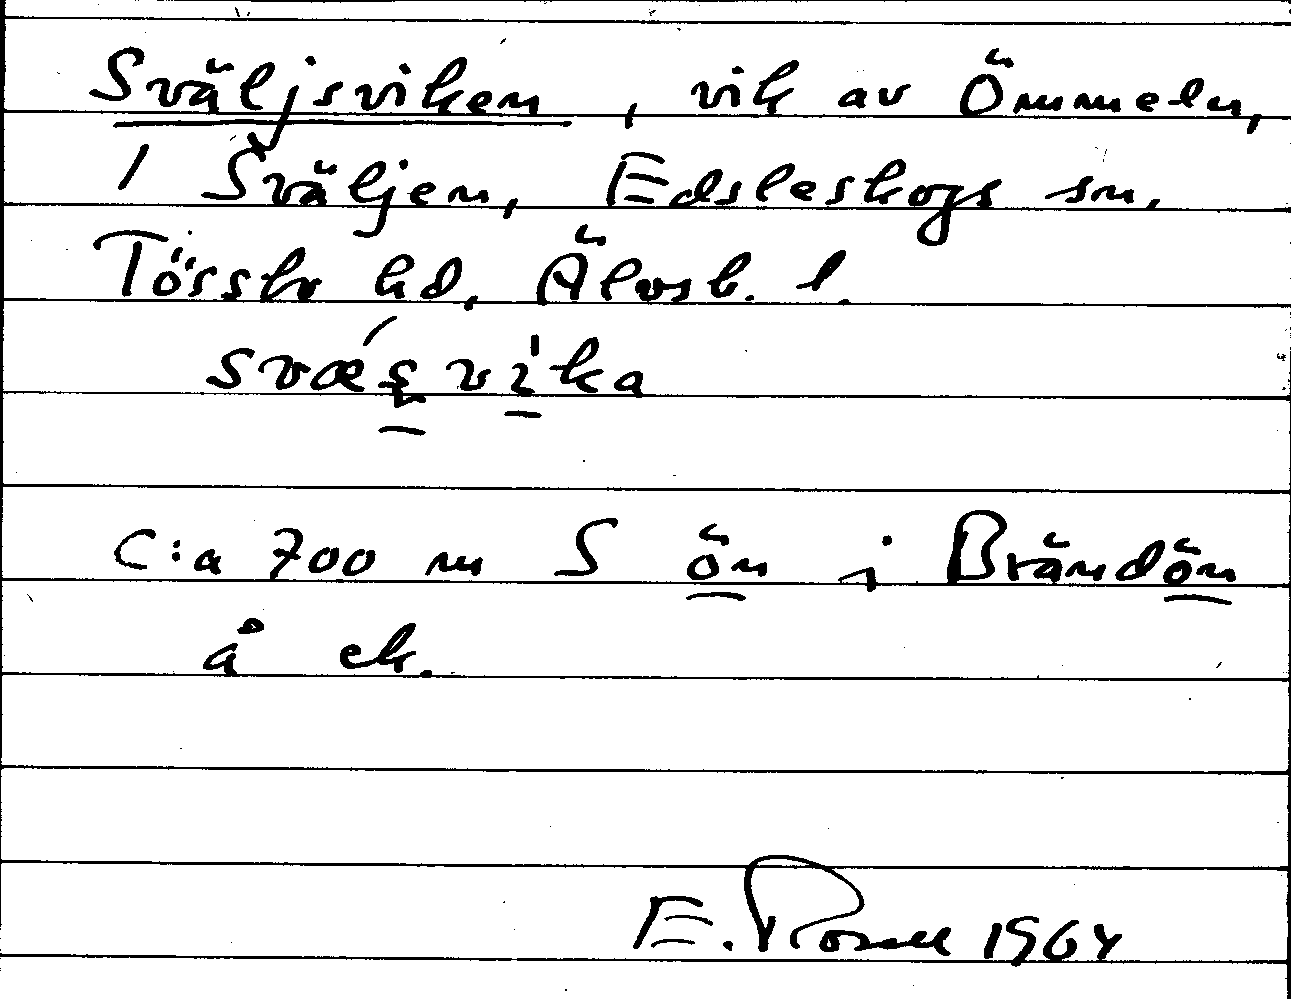 Sväljsviken, vik av Ömmeln,
/ Sväljen, Edsleskogs sn.
Tössbo hd, Älvsb. l.
svæ´ʂvi̍ka
C:a 700 m S ön i Brändön
å ek.
E. Rosell 1964